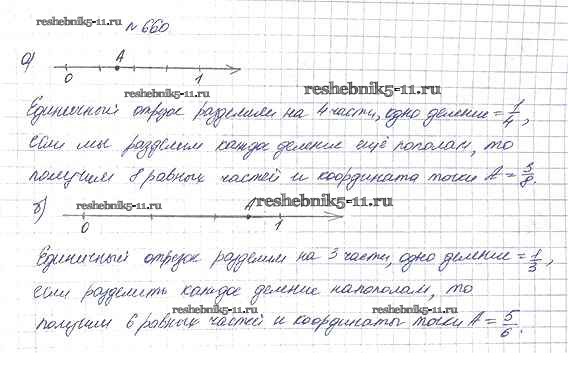 reshebnik5-11.ru
№660.
а)
А
0 1
reshebnik5-11.ru
Единичный отрезок разделили на 4 части, одно деление = 1/4,
если мы разделим каждое деление ещё пополам, то
получим 8 равных частей и координата точки А = 3/8.
б)
reshebnik5-11.ru
А
reshebnik5-11.ru
0 1
Единичный отрезок разделим на 3 части, одно деление = 1/3,
если разделить каждое деление напополам, то
reshebnik5-11.ru
reshebnik5-11.ru
получим 6 равных частей и координаты точки А = 5/6.